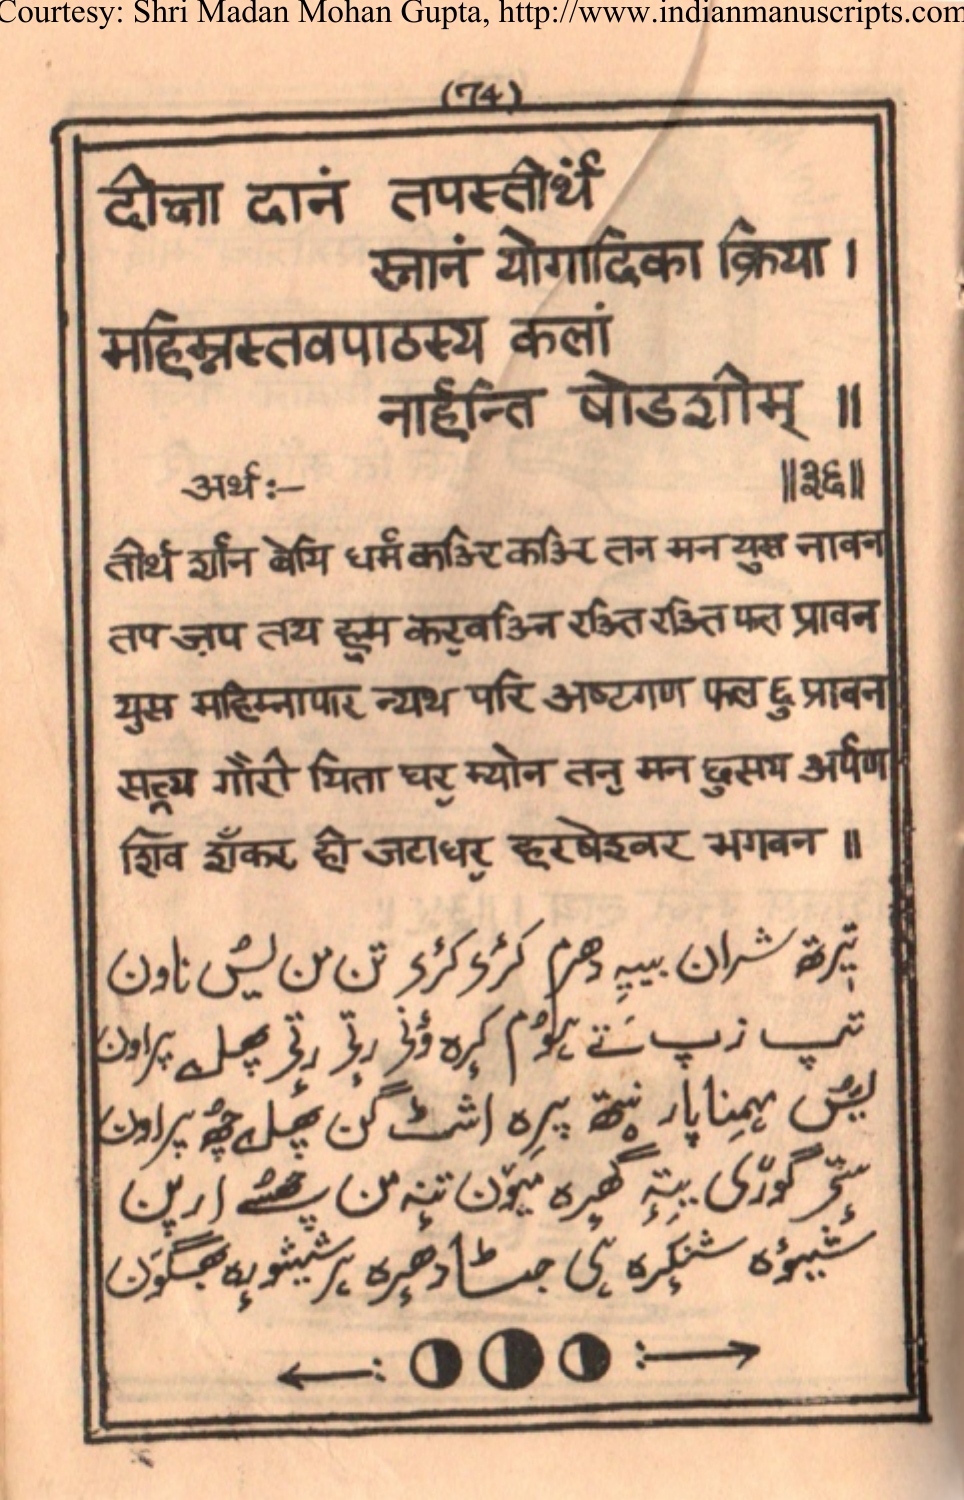 Courtesy: Shri Madan Mohan Gupta, http://www.indianmanuscripts.com
(74)
दीक्षा दानं तपस्तीर्थं
स्नानं योगादिका क्रिया ।
महिम्नस्तवपाठस्य कलां
नार्हन्ति षोडशीम् ॥
अर्थः— ॥३६॥
तीर्थ र्शान बेयि धर्म कऽरि कऽरि तन मन युस नावन
तप ज़प तय हूम करवऽनि रऽति रऽति फल प्रावन
युस महिम्नापार न्यथ परि अष्टगण फल छु प्रावन
सत्य गौरी यिता घर म्योन तन मन छुसय अर्पण
शिव शँकर ही जटाधर हरषेश्वर भगवन ॥
تیرتھ شران بییہ دھرم کرۍ کرۍ تن من یُس ناون
تپ زپ تے ہوٗم کرہ وٕنۍ رتۍ رتۍ پھل پراون
یُس مہمناپار نیتھ پرِہ اشٹ گن پھل چھُ پراون
ستۍ گورۍ یتہِ گھرہ میون تنہٕ من چھسے ارپن
شیوٕہ شنکرہ ہی جٹادھرہ ہرشیشورہ بھگون